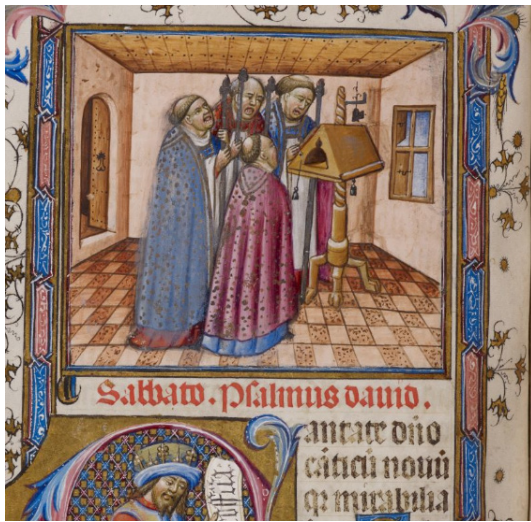 Sabbato . Psalmus dauid .
antate dño
cãticũ nouũ
qr mirabilia